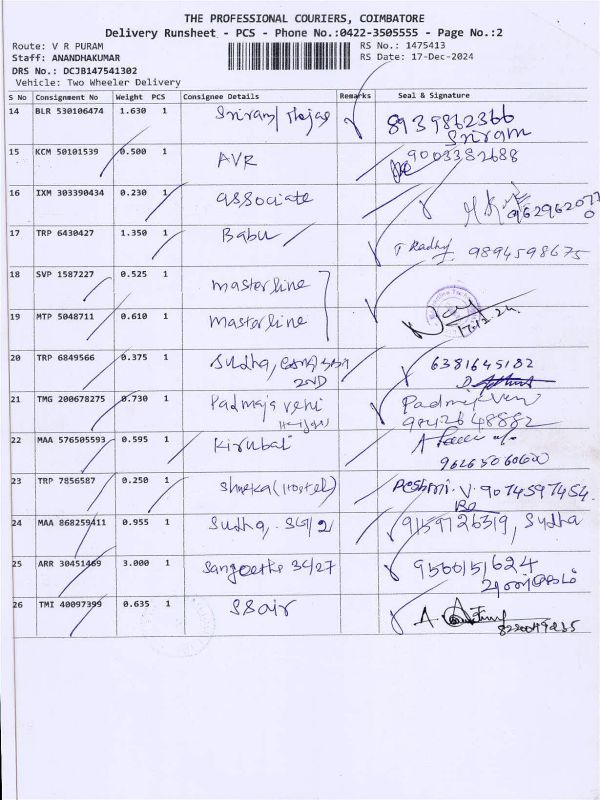 THE PROFESSIONAL COURIERS, COIMBATORE
Delivery Runsheet - PCS - Phone No.:0422-3505555 - Page No.:2
Route: V R PURAM
RS No.: 1475413
Staff: ANANDHAKUMAR
RS Date: 17-Dec-2024
DRS No.: DCJB147541302
Vehicle: Two Wheeler Delivery
S No Consignment No Weight PCS Consignee Details Remarks Seal & Signature
14 BLR 530106474 1.630 1 Sriram/ 8939862366
Sriram
15 KCM 50101539 0.500 1 AVR 9003382688
16 IXM 303390434 0.230 1 associate
17 TRP 6430427 1.350 1 Babu 9894598675
18 SVP 1587227 0.525 1 masterline
19 MTP 5048711 0.610 1 masterline 17.12.24
20 TRP 6849566 0.375 1 Sudha, 6381645182
2ND
21 TMG 200678275 0.730 1 Padmaja veni Padmaja Veni
9842648882
22 MAA 576505593 0.595 1 Kirubai
23 TRP 7856587 0.250 1 (Hostel) 9074597454
24 MAA 868259411 0.955 1 Sudha, 9159726319, Sudha
25 ARR 30451469 3.000 1 Sangeetha 34/27
26 TMI 40097399 0.635 1 SSair